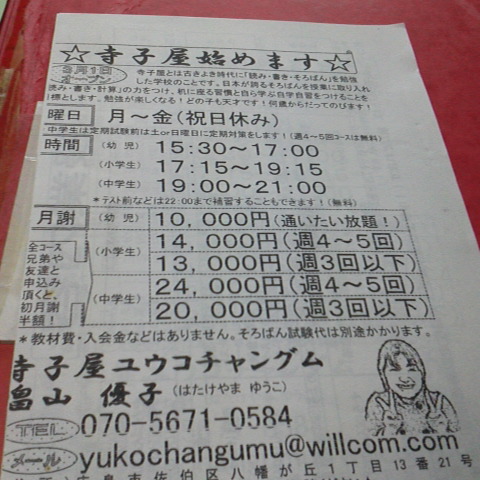 ☆寺子屋始めます☆
3月1日
オープン
寺子屋とは古きよき時代に「読み・書き・そろばん」を勉強
した学校のことです。日本が誇るそろばんを授業に取り入れ
読み・書き・計算」の力をつけ、机に座る習慣と自ら学ぶ自学自習をつけることを
目標とします。勉強が楽しくなる!どの子も天才です!何歳からだってのびます!
曜日 月~金(祝日休み)
中学生は定期試験前は土or日曜日に定期対策をします!(週4~5回コースは無料)
時間 (幼 児) 15:30~17:00
(小学生) 17:15~19:15
(中学生) 19:00~21:00
*テスト前などは22:00まで補習することもできます!(無料)
月謝 (幼 児) 10,000円(通いたい放題!)
(小学生) 14,000円(週4~5回)
13,000円(週3回以下)
(中学生) 24,000円(週4~5回)
20,000円(週3回以下)
全コース
兄弟や
友達と
申込み
頂くと、
初月謝
半額!
*教材費・入会金などはありません。そろばん試験代は別途かかります。
寺子屋ユウコチャングム
畠山 優子(はたけやま ゆうこ)
TEL 070-5671-0584
メール yukochangumu@willcom.com
市佐伯区八幡が丘1丁目13番21号